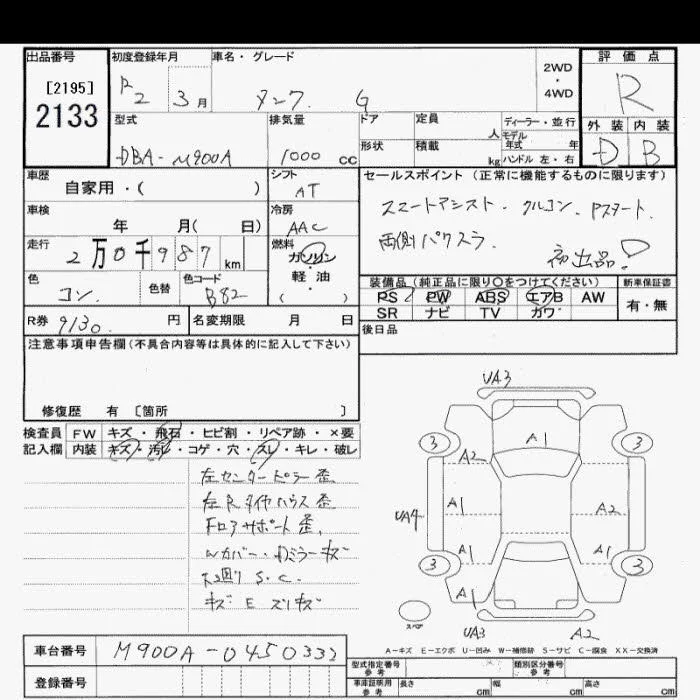 出品番号 初度登録年月 車名・グレード 2WD・4WD 評価点
[2195]
2133
R2 3月 タンク. G R
型式 排気量 ドア 定員 人 ディーラー・並行 外装 内装
DBA-M900A 1000 cc 形状 積載 kg モデル年式 年 ハンドル 左・右 D B
車歴 シフト セールスポイント(正常に機能するものに限ります)
自家用・( ) AT
スマートアシスト. クルコン. Pスタート.
車検 冷房
年 月( 日) AAC
両側パワスラ. 初出品!
走行 燃料
2万0千987km ガソリン・軽油( )
色 色替 色コード 装備品(純正品に限り○をつけてください) 新車保証書
コン. B82 PS PW ABS エアB AW 有・無
SR ナビ TV カワ
R券 9130. 円 名変期限 月 日 後日品
注意事項申告欄(不具合内容等は具体的に記入して下さい)
修復歴 有 〔箇所 〕
検査員 FW キズ・飛石・ヒビ割・リペア跡・×要
記入欄 内装 キズ・汚レ・コゲ・穴・スレ・キレ・破レ
左センターピラー歪
左Rタイヤハウス歪
Fロアサポート歪,
Wカバー・ワミラーキズ
下廻り S.C.
キズ E ズリキズ
UA3
A1
3 3
A2
A1 A2
UA4
A1 A1
3 3
A1
スペア
UA3 A2
A-キズ E-エクボ U-凹み W-補修跡 S-サビ C-腐食 XX-交換済
車台番号 M900A-0450332
登録番号
型式指定番号 参考 類別区分番号 参考
車庫証明用 参考 長さ cm 幅 cm 高さ cm